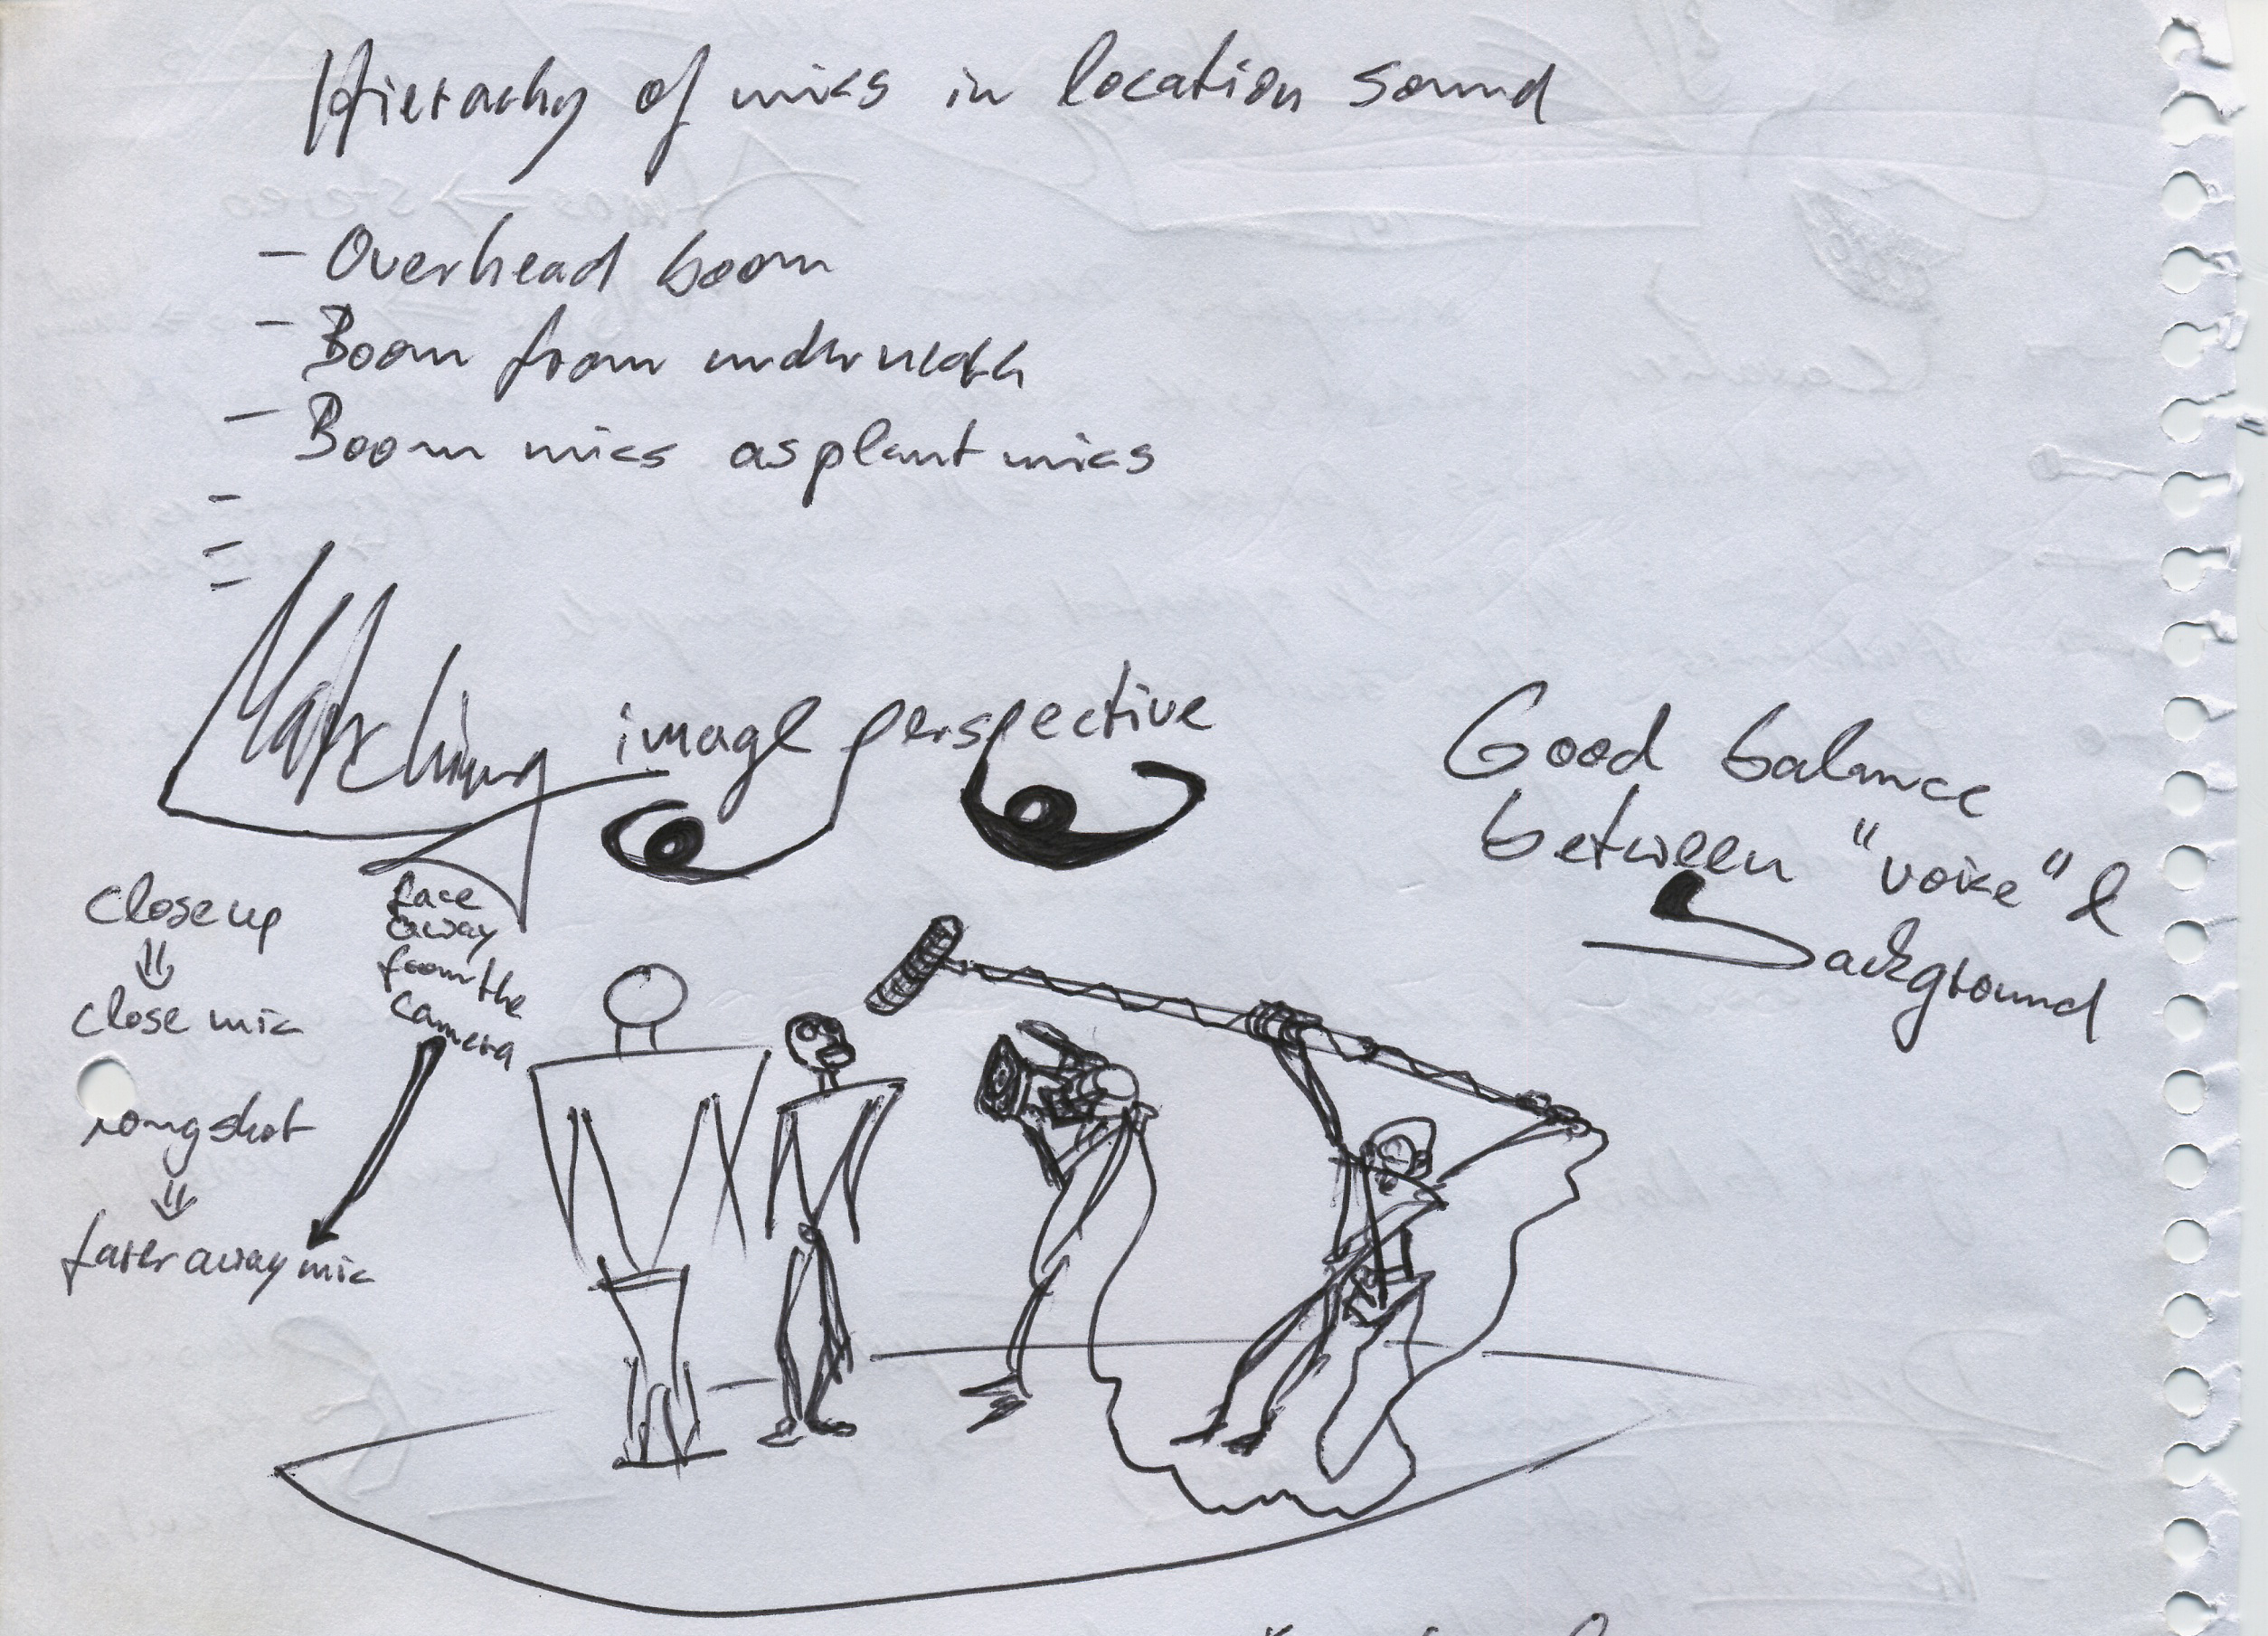 Hierachy of mics in location sound
- Overhead boom
- Boom from underneath
- Boom mics as plant mics
-
-
-
Matching image perspective
Good balance
between "voice" &
Background
Close up
⇓
close mic
longshot
⇓
farer away mic
face
away
from the
camera